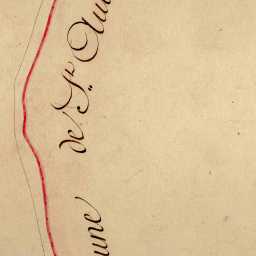 une de S.te Au